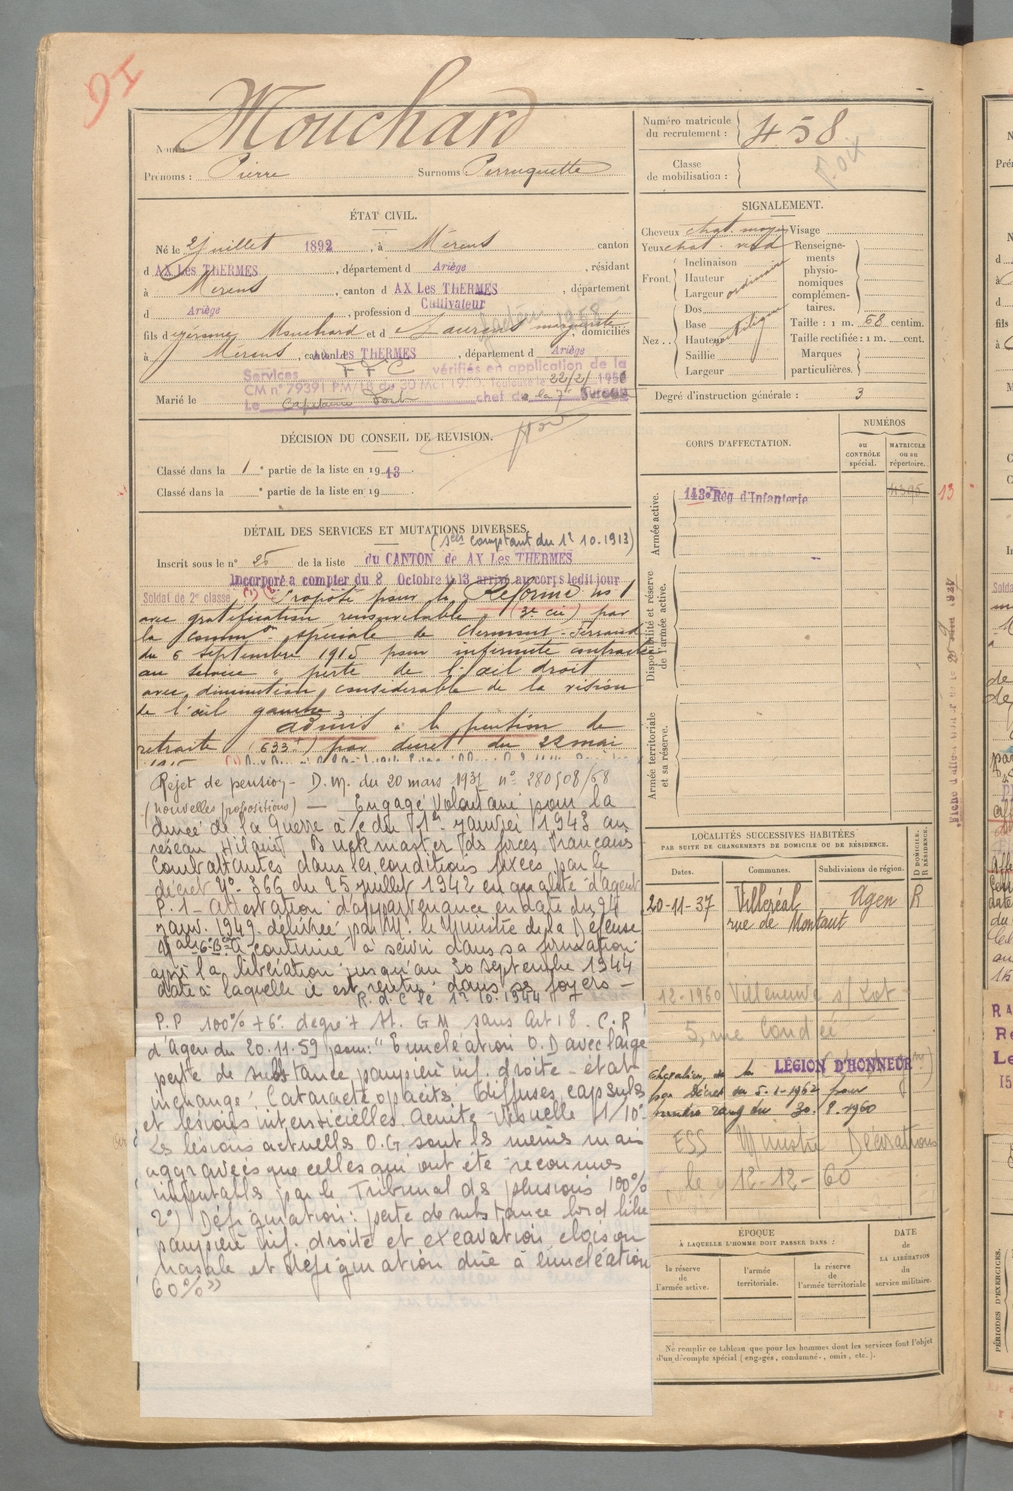 16
Nom : Mouchard
Prénoms : Pierre Surnoms : Perruquette
Numéro matricule du recrutement : 458
Classe de mobilisation :
Foix
ÉTAT CIVIL.
Né le 2 juillet 1892, à Mérens canton
d AX Les THERMES, département d Ariège, résidant
à Mérens, canton d AX Les THERMES, département
d Ariège, profession d Cultivateur
fils d Mouchard et d Laurens marguerite, domiciliés
à Mérens, canton d AX Les THERMES, département d Ariège
Services FFC vérifiés en application de la
CM n° 79391 PM/1B du 30 Mai 1950. Toulouse le 22/2/
Le Capitaine chef de la 7e
Marié le
DÉCISION DU CONSEIL DE RÉVISION.
Classé dans la 1e partie de la liste en 1913.
Classé dans la e partie de la liste en 19 .
DÉTAIL DES SERVICES ET MUTATIONS DIVERSES.
(Sces comptant du 1r 10.1913)
Inscrit sous le n° 25 de la liste du CANTON de AX Les THERMES
Incorporé à compter du 8 Octobre 1913 arrivé au corps ledit jour
Soldat de 2e classe Proposé pour la Réforme n° 1
avec gratification renouvelable (3e cie) par
la Common spéciale de Clermont-Ferrand
du 6 septembre 1915 pour infirmité contractée
au service "perte de l'œil droit
avec diminution considérable de la vision
de l'œil gauche"
admis à la pension de
retraite (633f) par décret du 22 mai
Rejet de pension - D.M. du 20 mars 1931 n° 280508/68
(nouvelles propositions) — Engagé Volontaire pour la
durée de la Guerre à/c du 1er janvier 1943 au
réseau Hilaire Buckmaster des forces Françaises
Combattantes dans les conditions fixées par le
décret N° 366 du 25 juillet 1942 en qualité d'agent
P.1 - Attestation d'appartenance en date du 24
janv. 1949 délivrée par Mr. le Ministre de la Défense
a continué à servir dans sa formation
après la libération jusqu'au 30 septembre 1944
date à laquelle il est rentré dans ses foyers -
R.d.C le 1r 10.1944
P.P 100% + 6e degré + St. G.M sans Art 18. C.R
d'Agen du 20.11.59 pour: "Enucléation O.D avec large
perte de substance paupière inf. droite - état
inchangé. Cataracte opacités diffuses capsules
et lésions interstitielles. Acuité Visuelle 1/10e
Les lésions actuelles O.G sont les mêmes mais
aggravées que celles qui ont été reconnues
imputables par le Tribunal des pensions 100%
2°) Défiguration: perte de substance bord libre
paupière inf. droite et excavation cloison
nasale et défiguration dûe à l'énucléation
60%"
SIGNALEMENT.
Cheveux chat. moyen Visage
Yeux chat. verd
Front. Inclinaison
Hauteur
Largeur ordinaire
Nez. Dos
Base
Hauteur
Saillie
Largeur
Renseignements physionomiques complémentaires.
Taille : 1 m. 68 centim.
Taille rectifiée : 1 m. cent.
Marques particulières.
Degré d'instruction générale : 3
CORPS D'AFFECTATION.
NUMÉROS
au CONTRÔLE spécial.
MATRICULE ou au répertoire.
Armée active.
143e Rég d'Infanterie
13
Disponibilité et réserve de l'armée active.
Armée territoriale et sa réserve.
LOCALITÉS SUCCESSIVES HABITÉES
PAR SUITE DE CHANGEMENTS DE DOMICILE OU DE RÉSIDENCE.
Dates. Communes. Subdivisions de région. D DOMICILE. R RÉSIDENCE.
20-11-37 Villeréal Agen R
rue de Montaut
12-1960 Villeneuve s/Lot
5, rue Condé
Chevalier de la LÉGION D'HONNEUR
par Décret du 5-1-1962 pour
prendre rang du 30.8.1960
ESS Ministre Décorations
le 12-12-60
ÉPOQUE
À LAQUELLE L'HOMME DOIT PASSER DANS :
la réserve de l'armée active.
l'armée territoriale.
la réserve de l'armée territoriale
DATE de LA LIBÉRATION du service militaire.
Ne remplir ce tableau que pour les hommes dont les services font l'objet
d'un décompte spécial (engagés, condamnés, omis, etc.).
PÉRIODES D'EXERCICES.